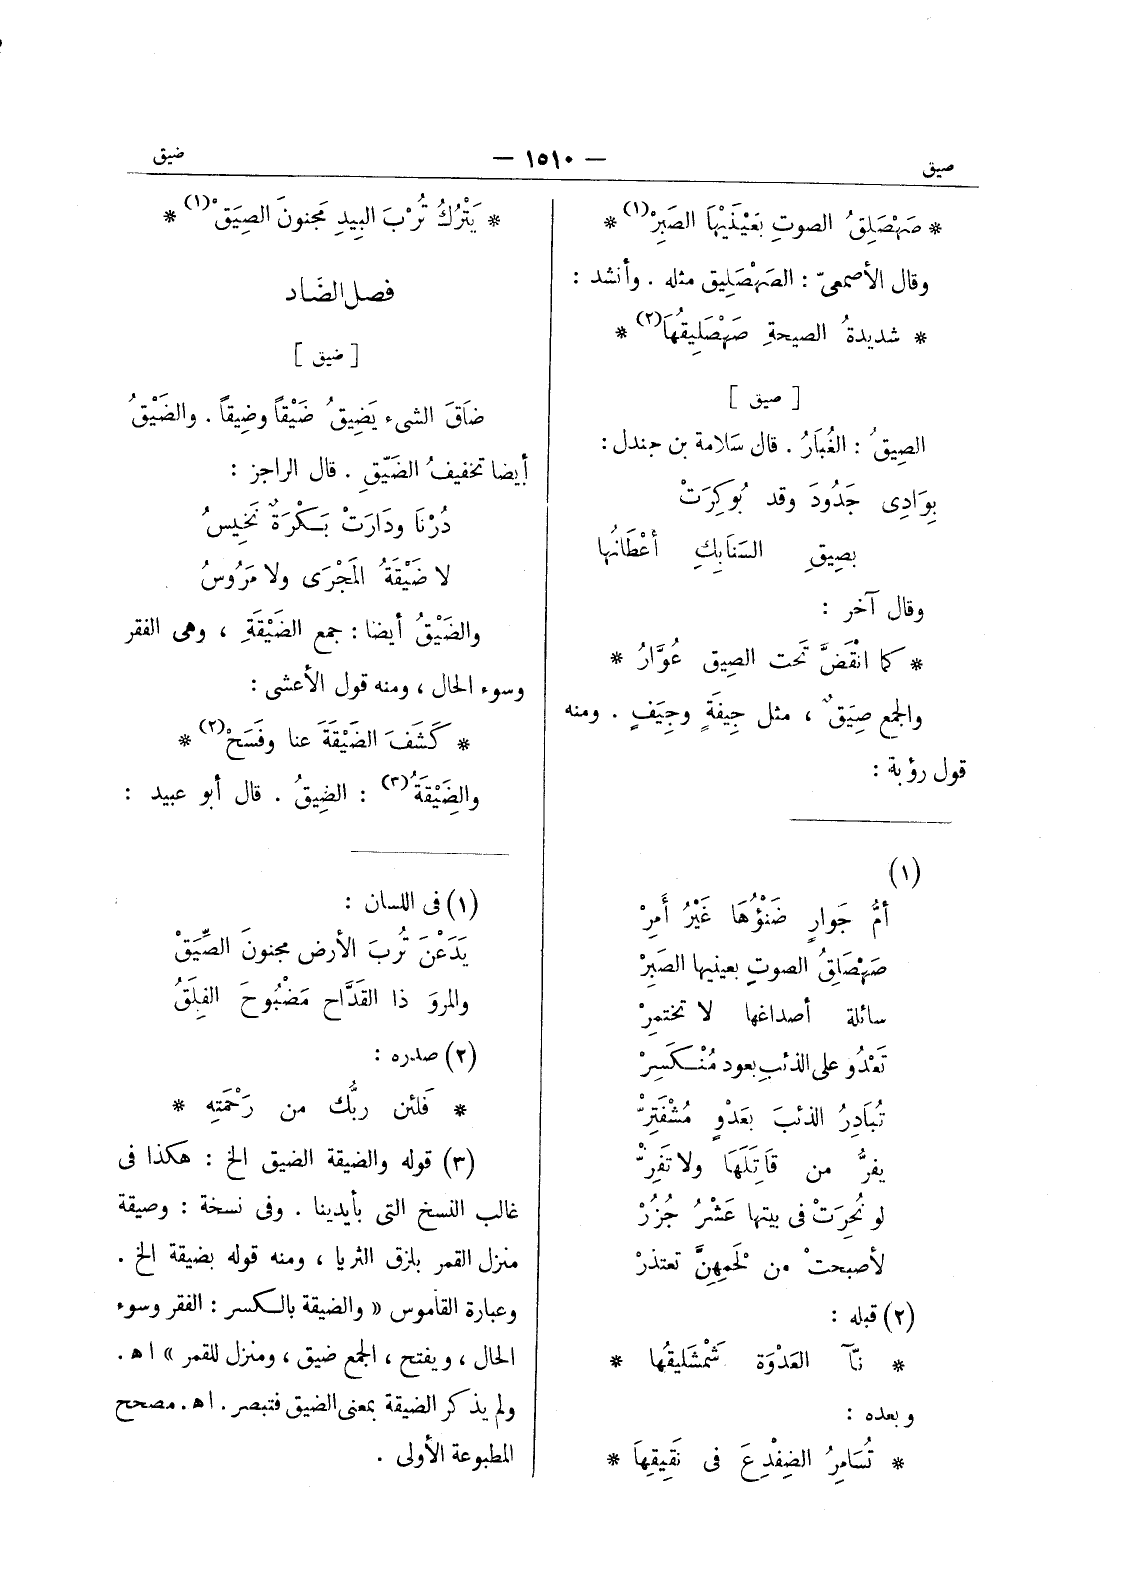 صيق
— ١٥١٠ —
ضيق
* صَهْصَلِقُ الصوتِ بعَيْنَيْهَا الصَبِرْ(١) *
وقال الأصمعىّ : الصَهْصَلِيق مثله . وأنشد :
* شديدةُ الصيحةِ صَهْصَلِيقُهَا(٢) *
[ صيق ]
الصِيقُ : الغُبَارُ . قال سَلامة بن جندل :
بِوَادِى جَدُودَ وقد بُوكِرَتْ
بصِيقِ السَنَابِكِ أعْطَانُها
وقال آخر :
* كما انْقَضَّ تَحت الصِيق عُوَّارُ *
والجمع صِيَقٌ ، مثل جِيفَةٍ وجِيَفٍ . ومنه
قول رؤبة :
(١)
أمُّ جَوارٍ ضَنْؤُهَا غَيْرُ أَمِرْ
صَهْصَلِقُ الصوتِ بعينيها الصَبِرْ
سائلة أصداغها لا تختمرْ
تَعْدُو على الذئبِ بعود مُنْكَسِرْ
تُبَادِرُ الذئبَ بعَدْوٍ مُشْفَتِرّْ
يفرُّ من قَاتِلَهَا ولا تَفِرّْ
لو نُحِرَتْ فى بيتها عَشْرُ جُزُرْ
لأصبحتْ من لَحمِهِنَّ تعتذرْ
(٢) قبله :
* نآّ العَدْوَة شَمْشَليقُها *
وبعده :
* تُسَامِرُ الضِفْدِعَ فى نَقِيقِهَا *
* يَتْرُكُ تُرْبَ البِيدِ مَجنونَ الصِيَقْ(١) *
فصل الضَاد
[ ضيق ]
ضَاقَ الشىء يَضِيقُ ضَيْقاً وضِيقاً . والضَيْقُ
أيضا تخفيفُ الضَيِّقِ . قال الراجز :
دُرْنَا ودَارَتْ بَكْرَةٌ نَخِيسُ
لا ضَيْقَةُ المَجْرَى ولا مَرُوسُ
والضَيْقُ أيضا : جمع الضَيْقَةِ ، وهى الفقر
وسوء الحال ، ومنه قول الأعشى :
* كَشَفَ الضَيْقَةَ عنا وفَسَحْ(٢) *
والضِيْقَةُ(٣) : الضِيقُ . قال أبو عبيد :
(١) فى اللسان :
يَدَعْنَ تُربَ الأرض مجنونَ الصِّيَقْ
والمروَ ذا القَدَّاح مَضْبُوحَ الفِلَقْ
(٢) صدره :
* فَلئن ربُّك من رَحْمَتِهِ *
(٣) قوله والضيقة الضيق الخ : هكذا فى
غالب النسخ التى بأيدينا . وفى نسخة : وضيقة
منزل القمر بلزق الثريا ، ومنه قوله بضيقة الخ .
وعبارة القاموس « والضيقة بالكسر : الفقر وسوء
الحال ، ويفتح ، الجمع ضيق ، ومنزل للقمر » اه .
ولم يذكر الضيقة بمعنى الضيق فتبصر . اه . مصحح
المطبوعة الأولى .